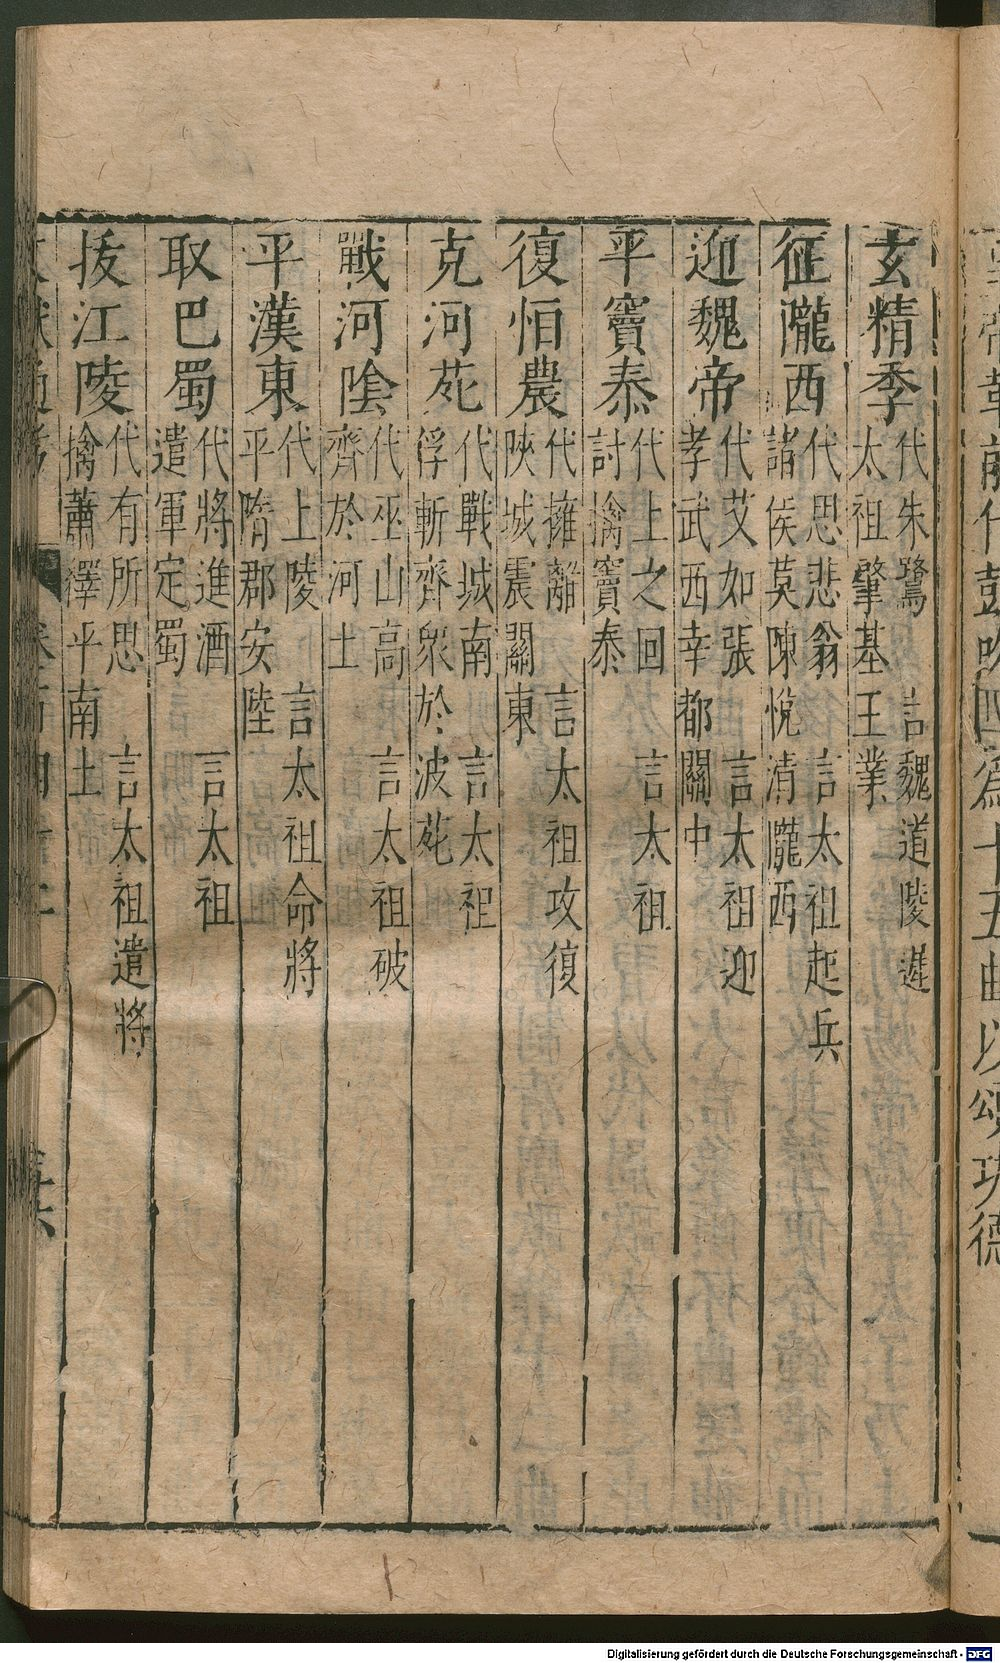 帝革前代鼓吹爲十五曲以頌功德
玄精季 代朱鷺 言魏道陵遲
太祖肇基王業
征隴西 代思悲翁 言太祖起兵
諸侯莫陳悅清隴西
迎魏帝 代艾如張 言太祖迎
孝武西幸都關中
平竇泰 代上之回 言太祖
討擒竇泰
復恒農 代擁離 言太祖攻復
陝城震關東
克河苑 代戰城南 言太祖
俘斬齊衆於波苑
戰河陰 代巫山高 言太祖破
齊於河土
平漢東 代上陵 言太祖命將
平隋郡安陸
取巴蜀 代將進酒 言太祖
遣軍定蜀
拔江陵 代有所思 言太祖遣將
擒蕭繹平南土
Digitalisierung gefördert durch die Deutsche Forschungsgemeinschaft - DFG